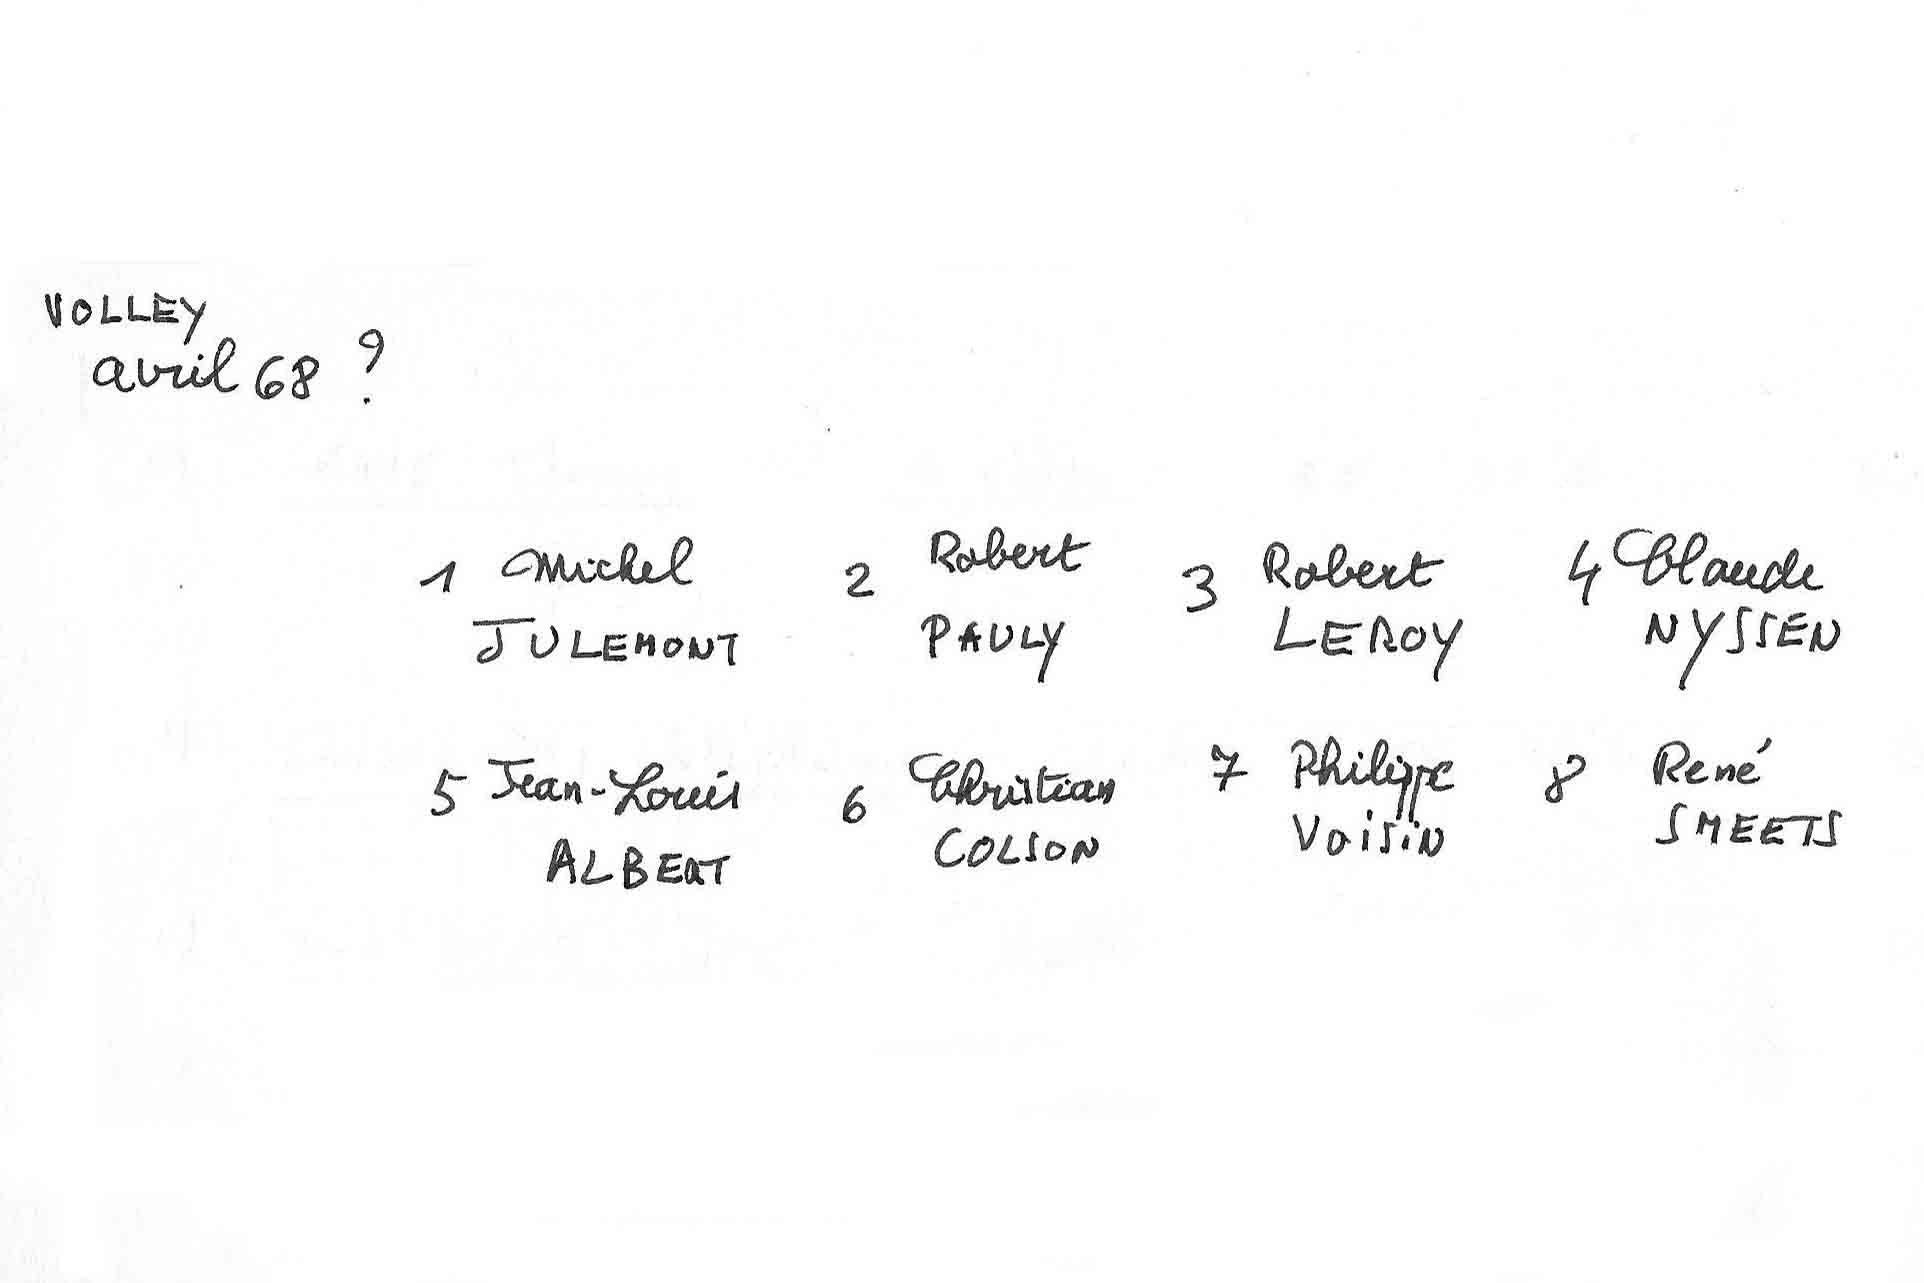 VOLLEY
avril 68 ?
1 Michel 2 Robert 3 Robert 4 Claude
JULEMONT PAULY LEROY NYSSEN
5 Jean-Louis 6 Christian 7 Philippe 8 René
ALBERT COLSON VOISIN SMEETS